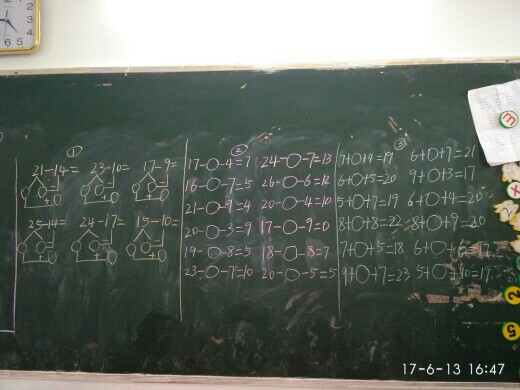 ①
21-14= 23-10= 17-9=
25-14= 24-17= 15-10=
②
17-○-4=7 24-○-7=13
16-○-7=5 26-○-6=12
21-○-9=4 20-○-4=10
20-○-3=9 17-○-9=0
19-○-8=5 18-○-8=7
23-○-7=10 20-○-5=5
③
7+○+4=19 6+○+7=21
6+○+5=20 9+○+3=17
5+○+7=19 6+○+4=20
8+○+8=22 8+○+9=20
7+○+5=18 6+○+6=17
9+○+7=23 5+○+10=19
17-6-13 16:47